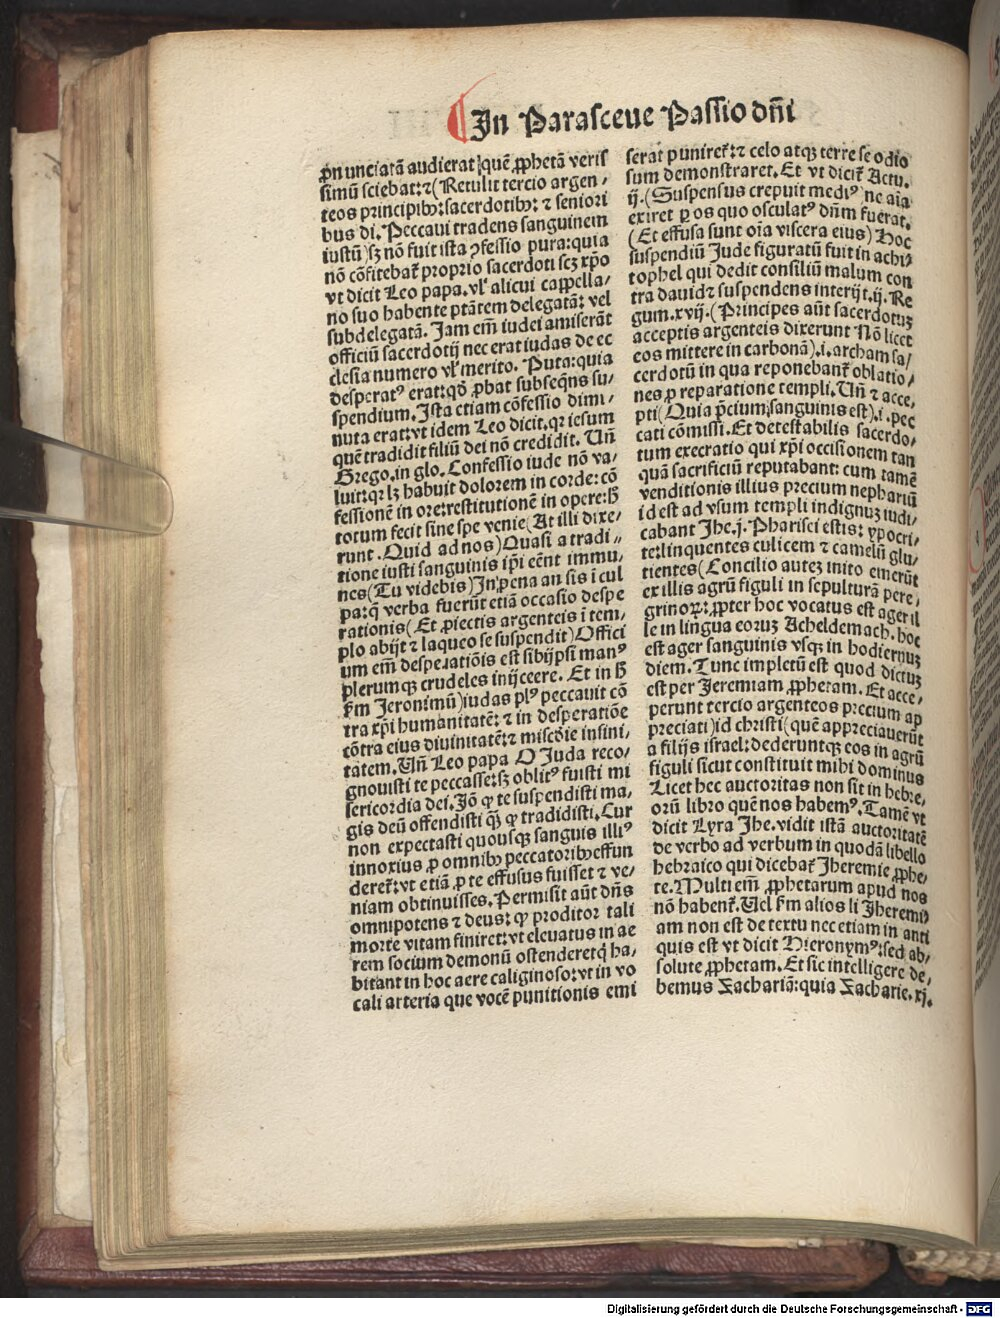 In Parasceue Passio dn̄i
p̄nunciatā audierat quē ꝓphetā veris
simū sciebat: ⁊ (Retulit tercio argen⸗
teos principibꝰ: sacerdotibꝰ: ⁊ seniori
bus di. Peccaui tradens sanguinem
iustū) sꝫ nō fuit ista ꝯfessio pura: quia
nō cōfitebat̄ proprio sacerdoti scꝫ xp̄o
vt dicit Leo papa. vl' alicui cappella⸗
no suo habente ptātem delegatā: vel
subdelegatā. Iam em̄ iudei amiserāt
officiū sacerdotij nec erat iudas de ec
clesia numero vl' merito. Puta: quia
desperatꝰ erat: qd̄ ꝓbat subseqn̄s su⸗
spendium. Ista etiam cōfessio dimi⸗
nuta erat: vt idem Leo dicit. qꝛ iesum
quē tradidit filiū dei nō credidit. Un̄
Grego. in glo. Confessio iude nō va⸗
luit: qꝛ lꝫ habuit dolorem in corde: cō
fessionē in ore: restitutionē in opere: h̄
totum fecit sine spe venie (At illi dixe⸗
runt. Quid ad nos) Quasi a tradi⸗
tione iusti sanguinis ip̄i eēnt immu⸗
nes (Tu videbis) In pena an sis ī cul
pa: q̄ verba fuerūt etiā occasio despe
rationis (Et ꝓiectis argenteis ī tem⸗
plo abijt ⁊ laqueo se suspendit) Offici
um em̄ desperatiōis est sibijpsi manꝰ
plerumqꝫ crudeles inijcere. Et in h̄
ẜm Jeronimū) iudas plꝰ peccauit cō
tra xp̄i humanitatē: ⁊ in desperatiōe
cōtra eius diuinitatē: ⁊ mīcdie infini⸗
tatem. Un̄ Leo papa O Juda reco⸗
gnouisti te peccasse: sꝫ oblitꝰ fuisti mi
sericordia dei. Iō ꝙ te suspendisti ma⸗
gis deū offendisti q̄ꝫ ꝙ tradidisti. Cur
non expectasti quousqꝫ sanguis illiꝰ
innoxius ꝓ omnibꝰ peccatoribꝰ effun
deret̄: vt etiā ꝓ te effusus fuisset ⁊ ve⸗
niam obtinuisses. Permisit aūt dn̄s
omnipotens ⁊ deus: ꝙ proditor tali
morte vitam finiret: vt eleuatus in ae
rem socium demonū ostenderetq̄ ha⸗
bitant in hoc aere caliginoso: vt in vo
cali arteria que vocē punitionis emi
serat puniret̄: ⁊ celo atqꝫ terre se odio
sum demonstraret. Et vt dicit̄ Actu.
ij. (Suspensus crepuit mediꝰ ne aīa
exiret ꝑ os quo osculatꝰ dn̄m fuerat.
(Et effusa sunt oīa viscera eius) Hoc
suspendiū Jude figuratū fuit in achi⸗
tophel qui dedit consiliū malum con
tra dauid ⁊ suspendens interijt. ij. Re
gum. xvij. (Principes aūt sacerdotuꝫ
acceptis argenteis dixerunt Nō licet
eos mittere in carbonā). i. archam sa⸗
cerdotū in qua reponebant̄ oblatio⸗
nes ꝓ reparatione templi. Un̄ ⁊ acce⸗
pti (Quia p̄cium sanguinis est). i. pec
cati cōmissi. Et detestabilis sacerdo⸗
tum execratio qui xp̄i occisionem tan
quā sacrificiū reputabant: cum tamē
venditionis illius precium nephariū
id est ad vsum templi indignuꝫ iudi⸗
cabant Ihe. j. Pharisei estis: ypocri⸗
te: linquentes culicem ⁊ camelū glu⸗
tientes (Concilio auteꝫ inito emerūt
ex illis agrū figuli in sepulturā pere⸗
grinoꝝ: ꝓpter hoc vocatus est ager il
le in lingua eoruꝫ Acheldemach. hoc
est ager sanguinis vsqꝫ in hodiernuꝫ
diem. Tunc impletū est quod dictuꝫ
est per Jeremiam ꝓphetam. Et acce⸗
perunt tercio argenteos precium ap
preciati) id christi (quē appreciauerūt
a filijs israel: dederuntqꝫ eos in agrū
figuli sicut constituit mihi dominus
Licet hec auctoritas non sit in hebre⸗
orū libro quē nos habemꝰ. Tamē vt
dicit Lyra Ihe. vidit istā auctoritatē
de verbo ad verbum in quodā libello
hebraico qui dicebat̄ Iheremie ꝓphe⸗
te. Multi em̄ ꝓphetarum apud nos
nō habent̄. Uel ẜm alios li Iheremi⸗
am non est de textu nec etiam in anti
quis est vt dicit Hieronymꝰ: sed ab⸗
solute ꝓphetam. Et sic intelligere de⸗
bemus Zachariā: quia Zacharie. xj.
Digitalisierung gefördert durch die Deutsche Forschungsgemeinschaft - DFG